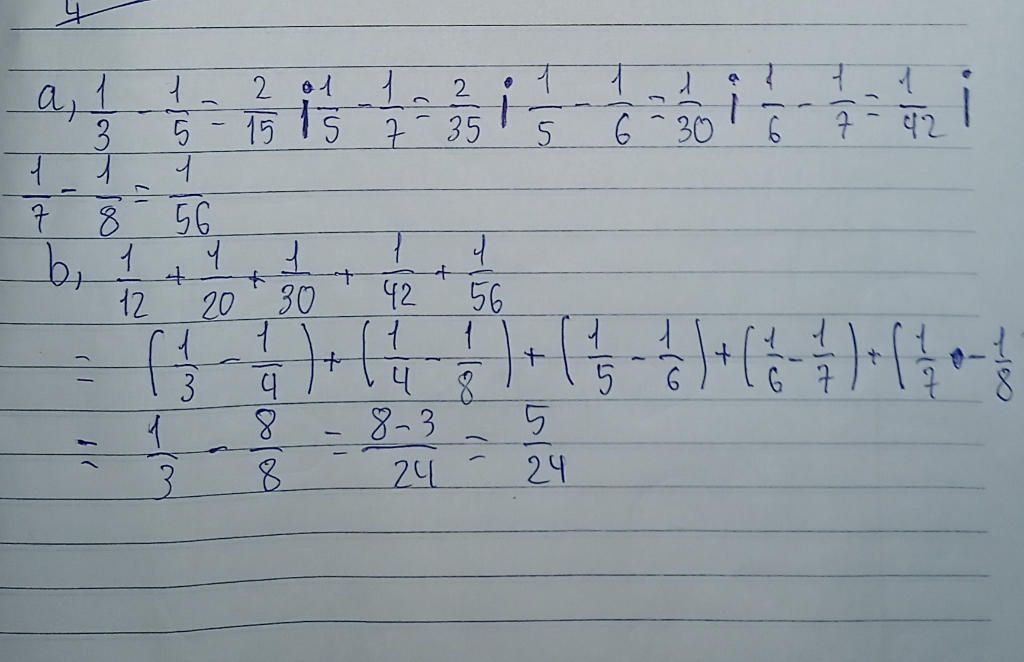 4
a, 1/3 - 1/5 = 2/15 ; 1/5 - 1/7 = 2/35 ; 1/5 - 1/6 = 1/30 ; 1/6 - 1/7 = 1/42 ;
1/7 - 1/8 = 1/56
b, 1/12 + 1/20 + 1/30 + 1/42 + 1/56
= (1/3 - 1/4) + (1/4 - 1/8) + (1/5 - 1/6) + (1/6 - 1/7) + (1/7 - 1/8
= 1/3 - 8/8 = 8-3/24 = 5/24